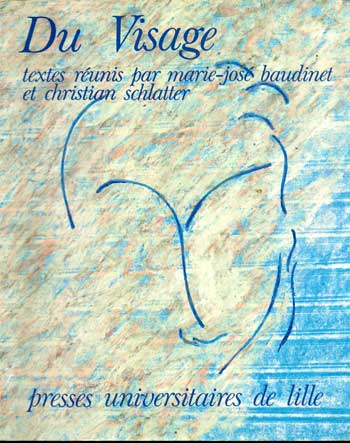 Du Visage
textes réunis par marie-josé baudinet
et christian schlatter
presses universitaires de lille